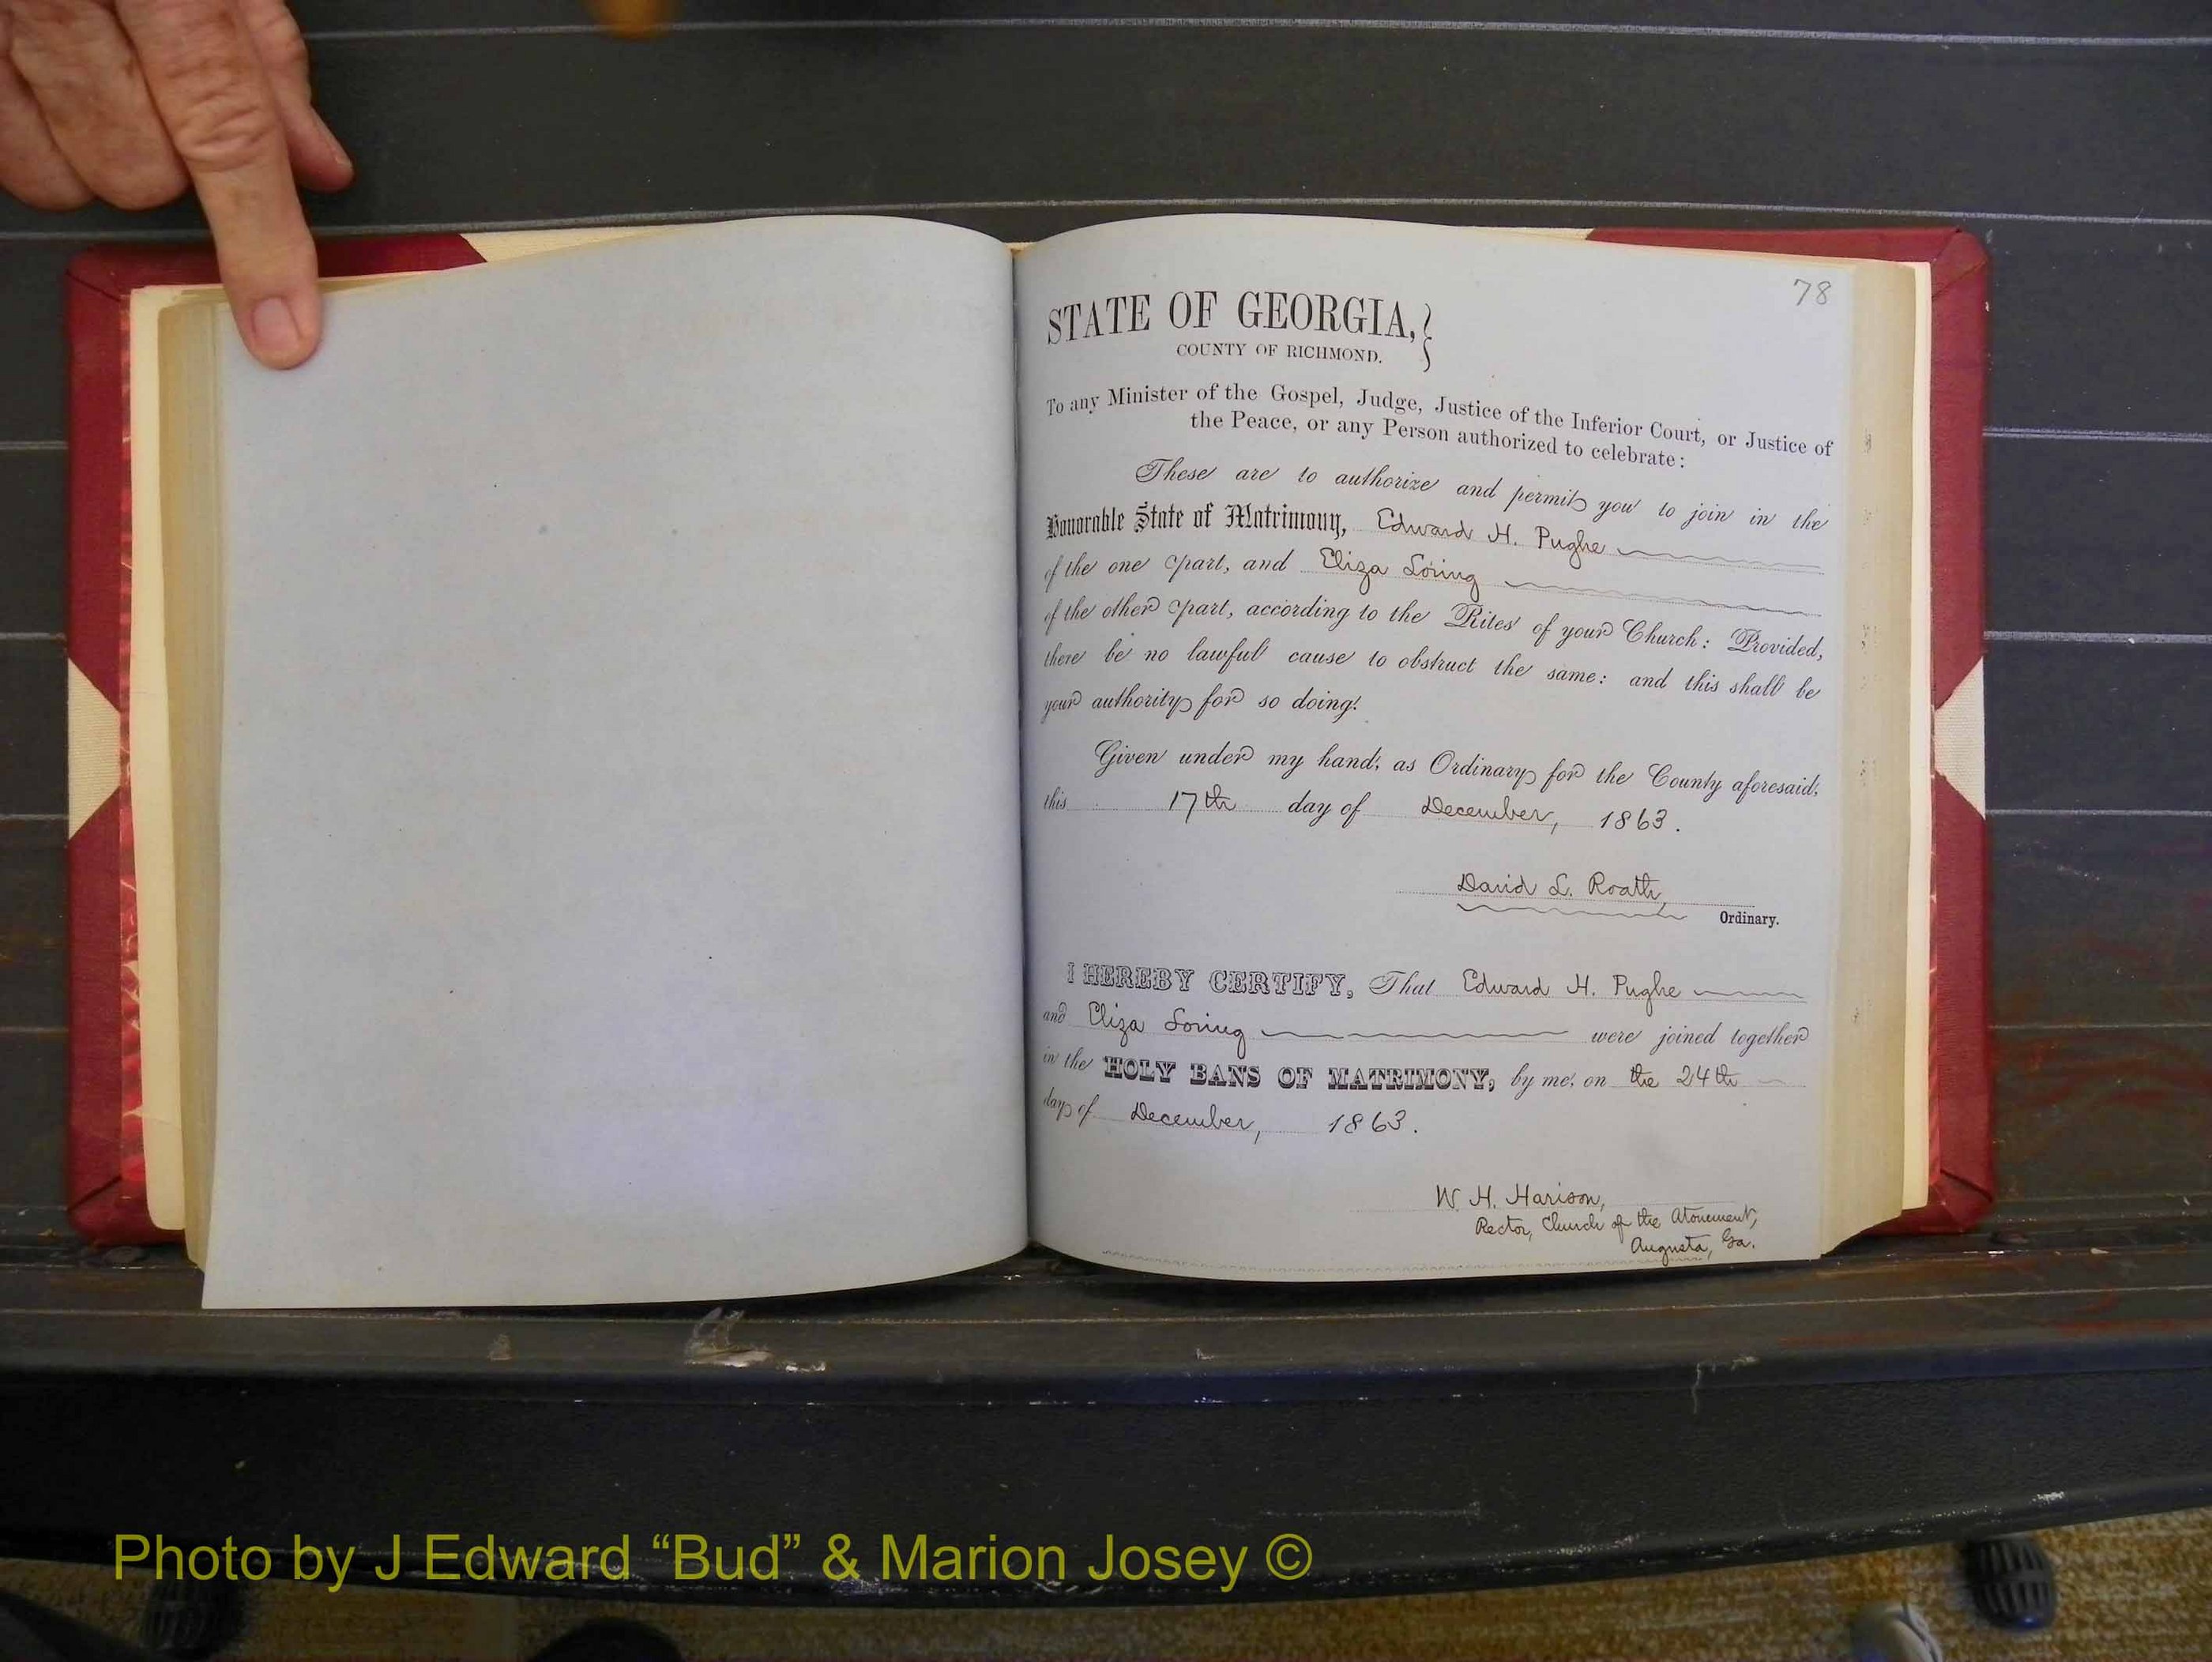 78
STATE OF GEORGIA,}
COUNTY OF RICHMOND.
To any Minister of the Gospel, Judge, Justice of the Inferior Court, or Justice of
the Peace, or any Person authorized to celebrate:
These are to authorize and permit you to join in the
Honorable State of Matrimony, Edward H. Pughe
of the one part, and Eliza Loring
of the other part, according to the Rites of your Church: Provided,
there be no lawful cause to obstruct the same: and this shall be
your authority for so doing.
Given under my hand, as Ordinary for the County aforesaid,
this 17th day of December, 1863.
David L. Roath,
Ordinary.
I HEREBY CERTIFY, That Edward H. Pughe
and Eliza Loring were joined together
in the HOLY BANS OF MATRIMONY, by me, on the 24th
day of December, 1863.
W. H. Harison,
Rector, Church of the Atonement,
Augusta, Ga.
Photo by J Edward “Bud” & Marion Josey ©